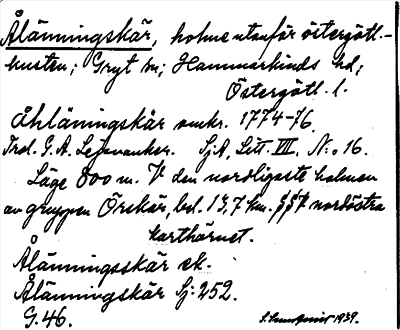 Ålänningskär, holme utanför östergötl.-
kusten; Gryt sn; Hammarkinds hd;
Östergötl. l.
Åhläningskär omkr. 1774-76.
Trol. G. A. Lejonanker. SjA, Litt. VII, No. 16.
Läge 800 m. V den nordligaste holmen
av gruppen Örskär, bel. 13,7 km. nordöstra
karthörnet.
Ålänningsskär ek.
Ålänningskär Sj: 252.
G. 46.
1939.